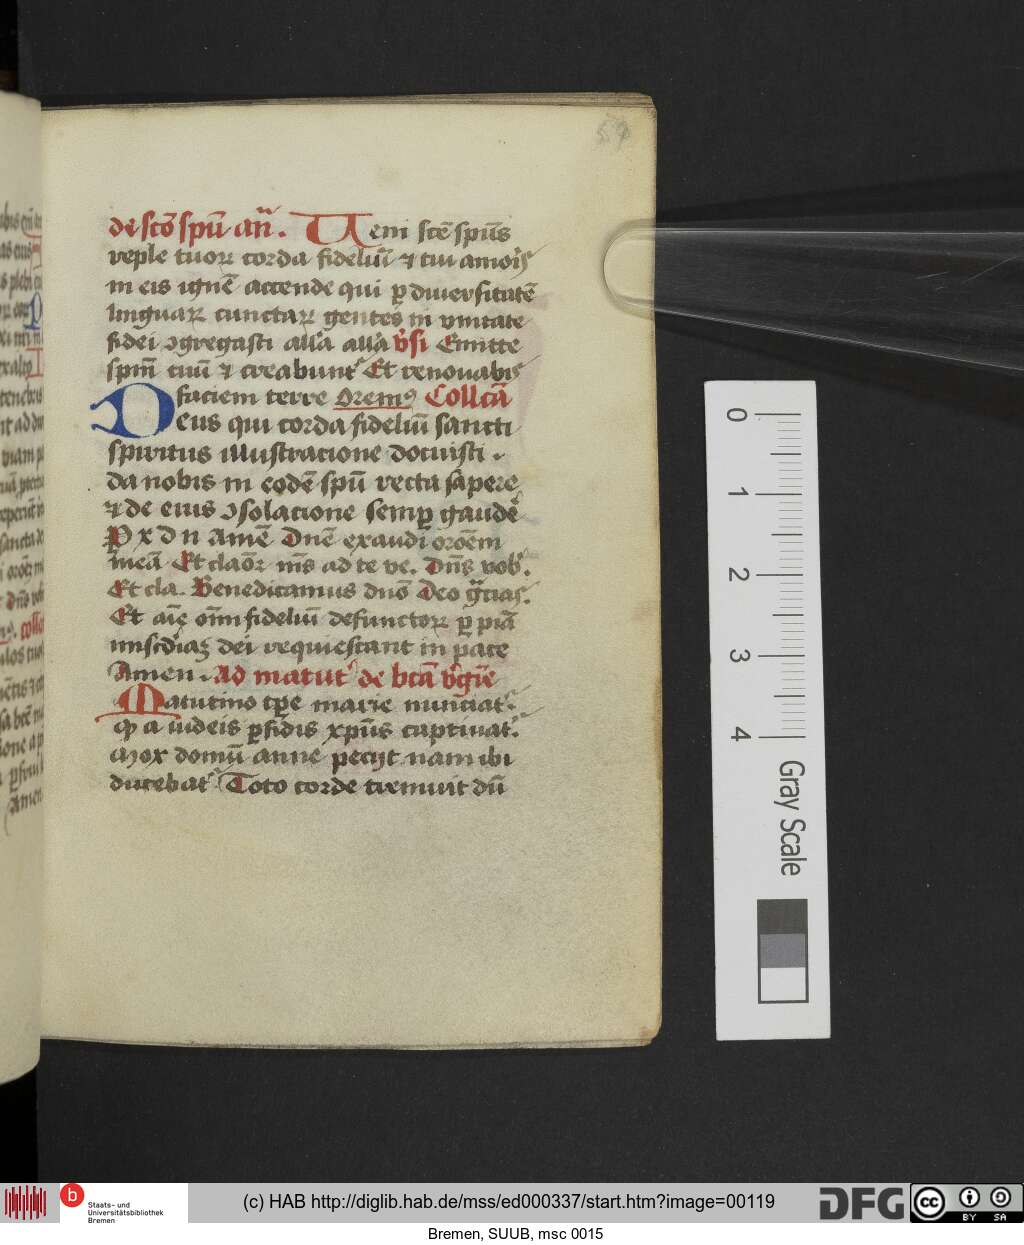 59
de sctō spū añ. Ueni sctē spūs
reple tuoꝝ corda fideliū ⁊ tui amoris
in eis ignē accende qui ꝑ diuersitatē
linguaꝝ cunctaꝝ gentes in vnitate
fidei ꝯgregasti alla alla v̄si Emitte
spm̄ tuū ⁊ creabunt᷑ Et renouabis
faciem terre Oremꝯ Collcā
Deus qui corda fideliū sancti
spiritus illustracione docuisti .
da nobis in eodē spū recta sapere
⁊ de eius ꝯsolacione semꝑ gaudē
P x d n Amē Dnē exaudi oroēm
meā Et clāor m̄s ad te ve. Dn̄s vob᷑.
Et cla. Benedicamus dnō Deo gc̄ias.
Et aīe oīm fideliū defunctoꝝ ꝑ piā
miscdiaꝫ dei requiescant in pace
Amen . Ad matut᷑ de btā v̄gīe
Matutino tꝑe marie nunciat᷑
ꝙ a iudeis ꝑfidis xp̄us captiuat᷑
Mox domū anne pecijt nam ibi
ducebat᷑ Toto corde tremuit dū
0
1
2
3
4
Gray Scale
b
Staats- und
Universitätsbibliothek
Bremen
(c) HAB http://diglib.hab.de/mss/ed000337/start.htm?image=00119
DFG
cc
BY SA
Bremen, SUUB, msc 0015